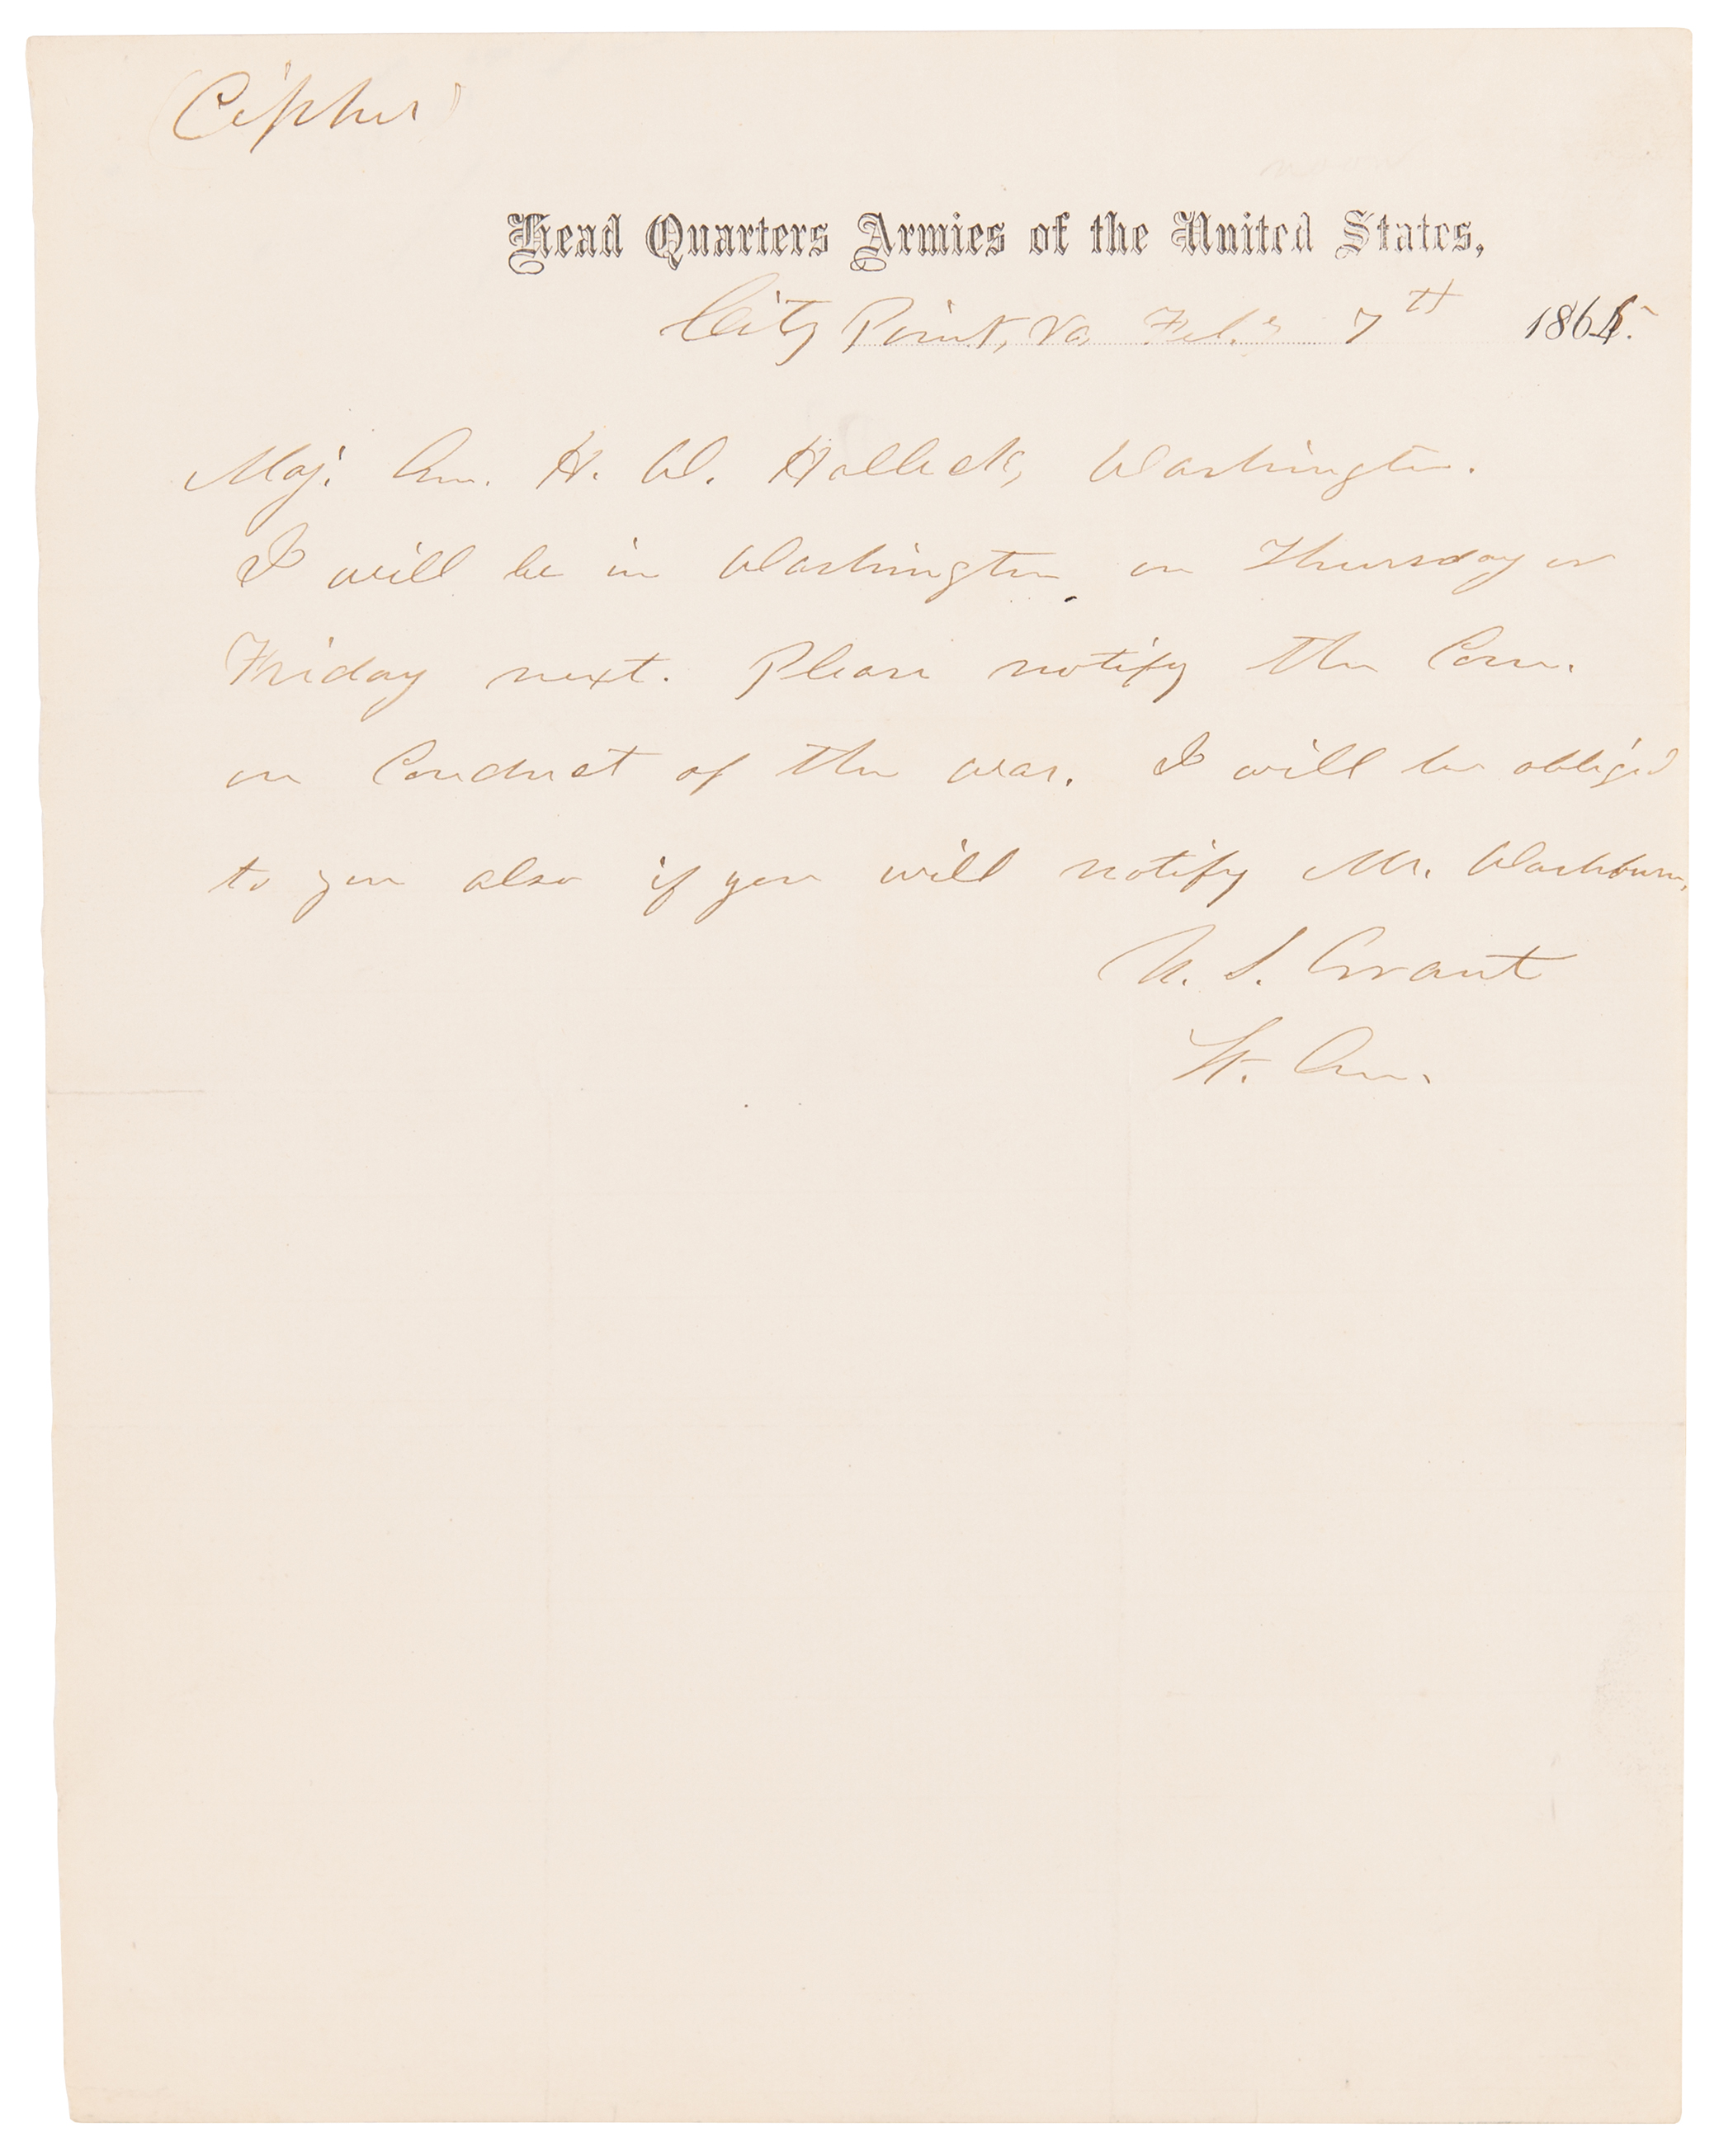 (Cipher)
Head Quarters Armies of the United States,
City Point, Va, Feb.y 7th 1865.
Maj. Gen. H. W. Halleck, Washington.
I will be in Washington on Thursday or
Friday next. Please notify the Com.
on Conduct of the war. I will be obliged
to you also if you will notify Mr. Washburn.
U. S. Grant
Lt. Gen.